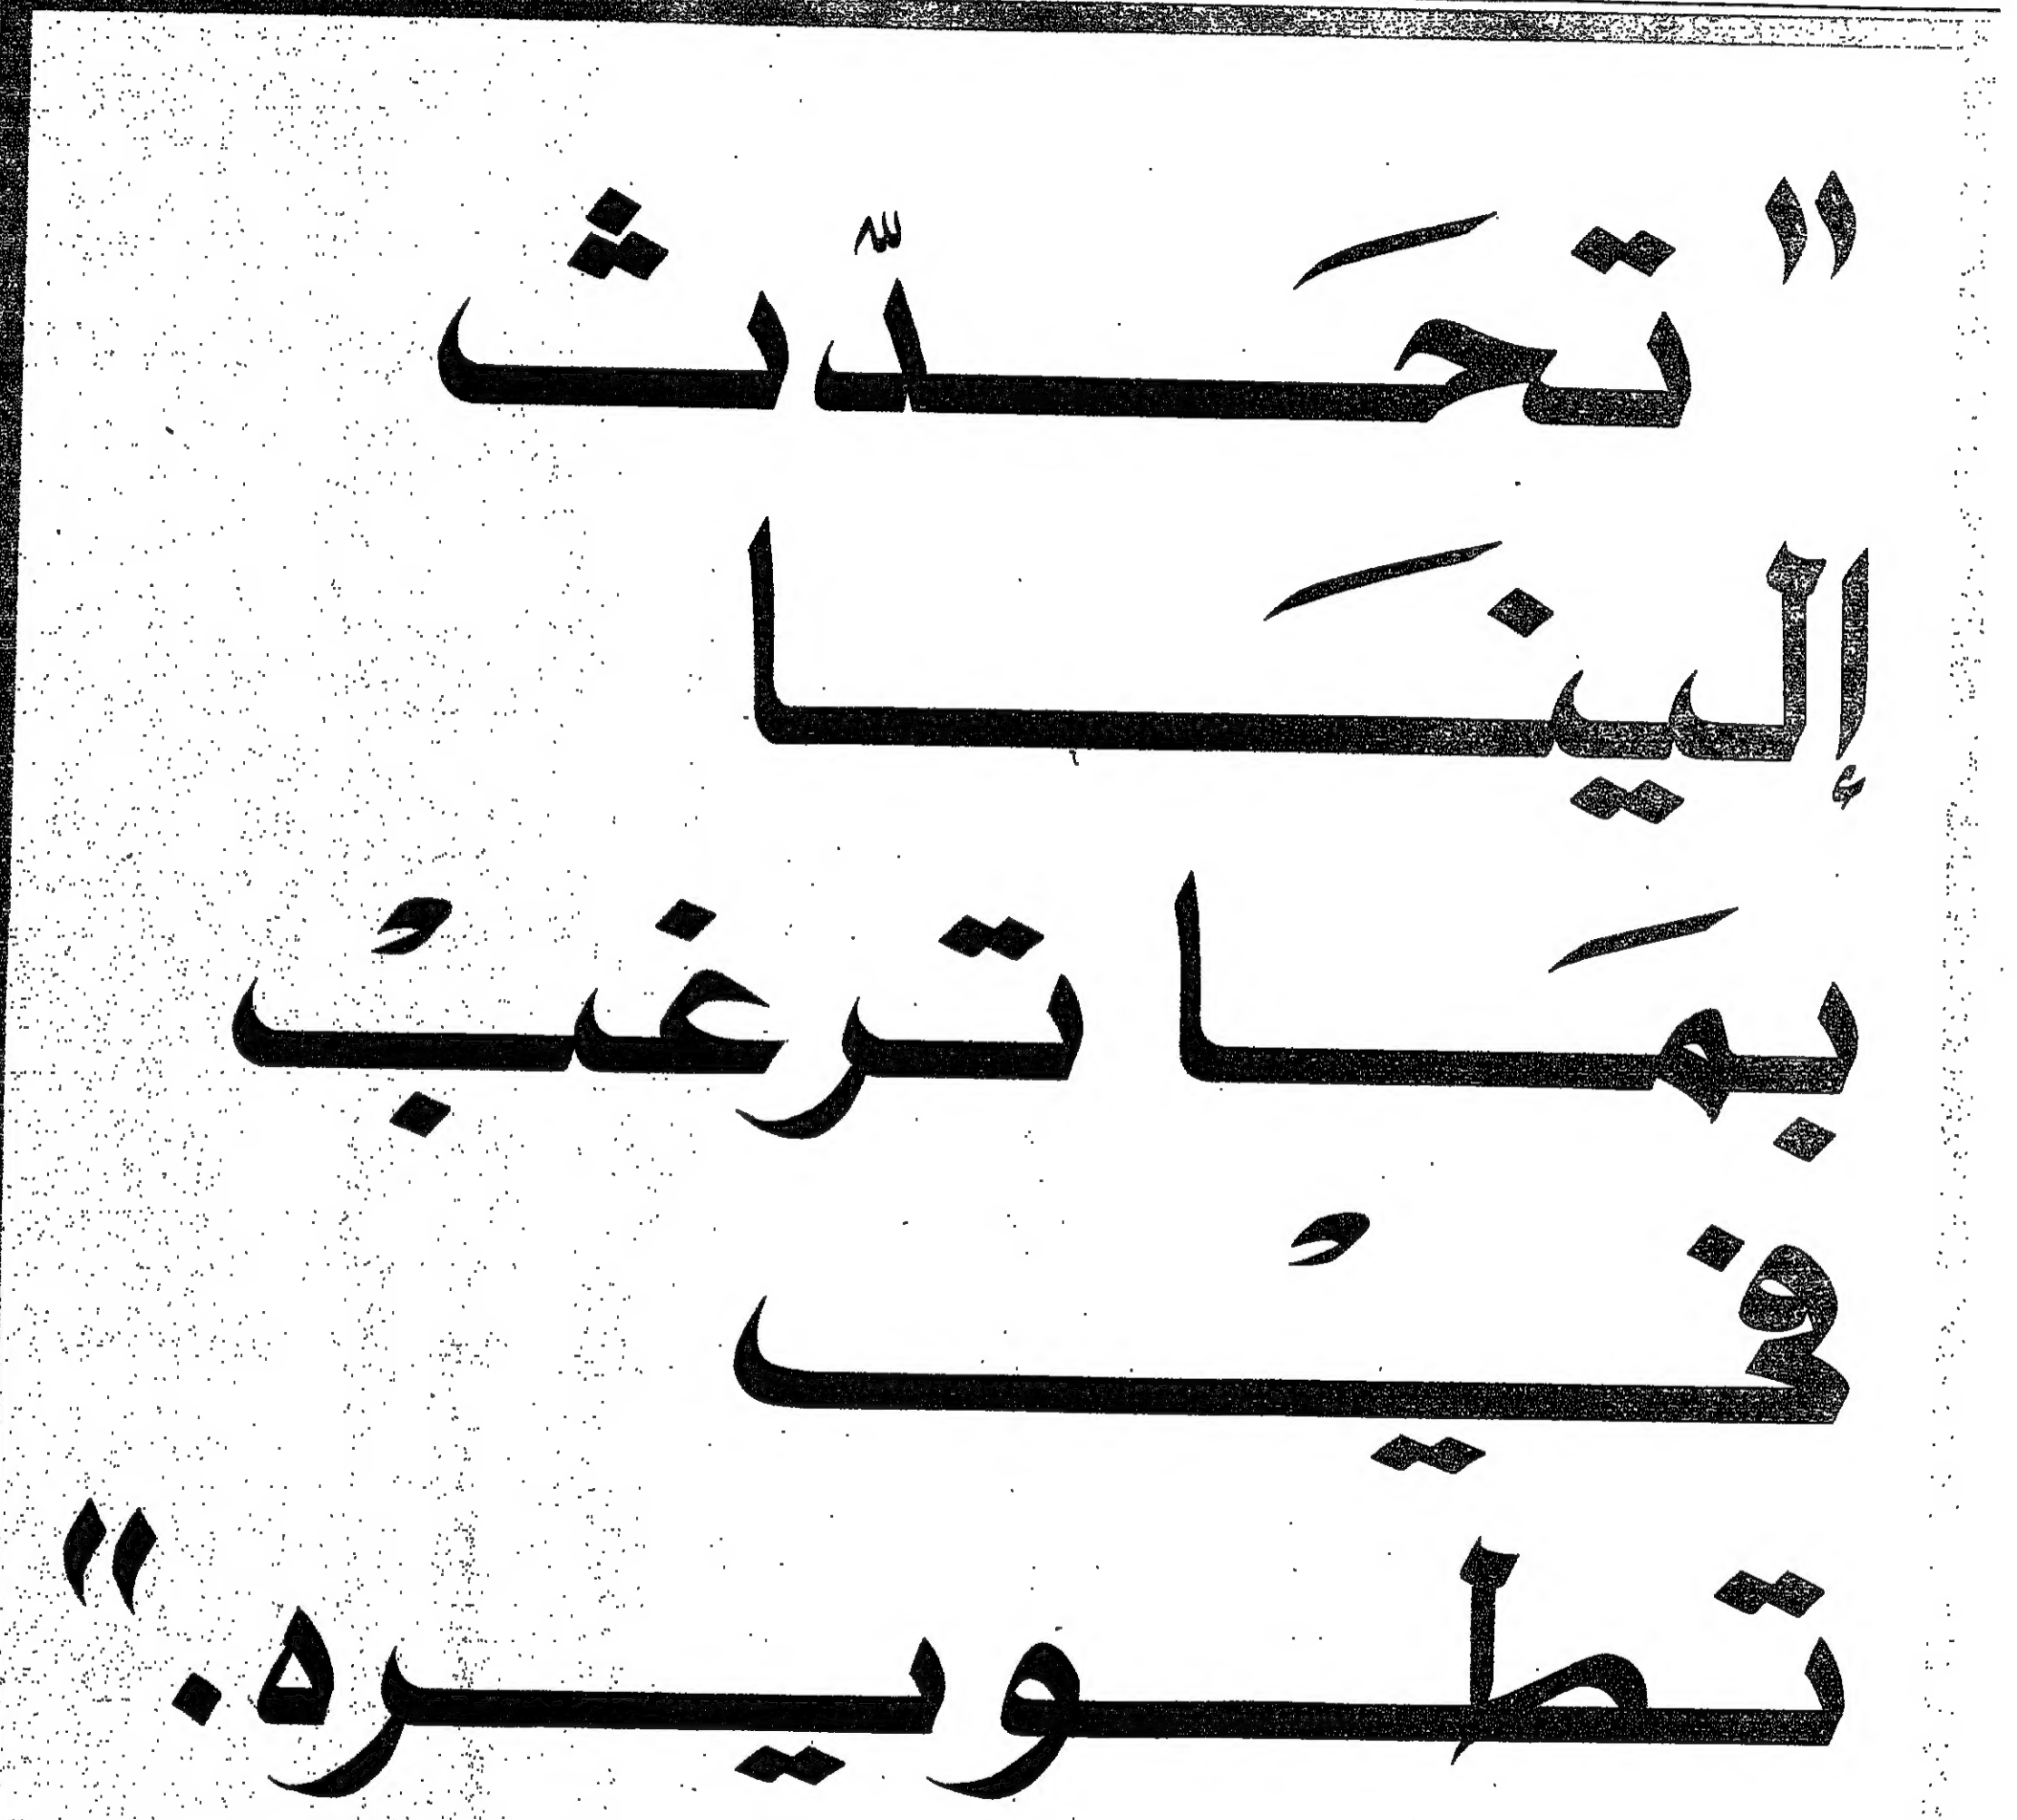 "تحَدّث
إلينَا
بمَا ترغبْ
فيْ
تطويره."